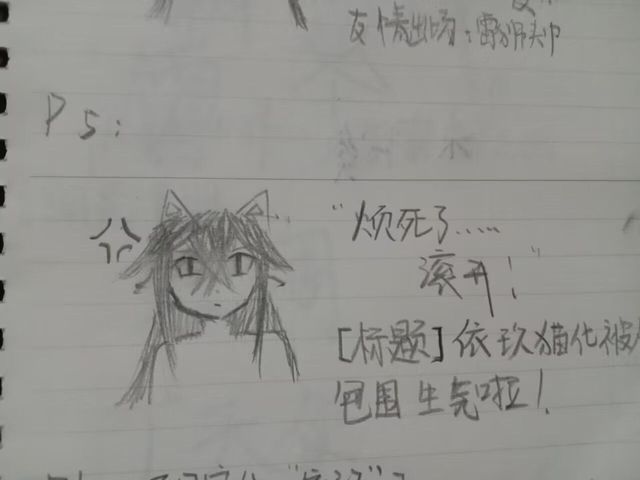 友情出场：雷狮
P5：
“烦死了……
滚开！”
[标题] 依玖猫化被
包围生气啦！